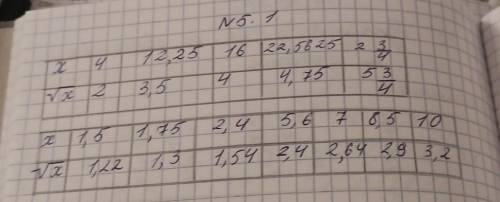 N5.1
x 4 12,25 16 22,5625 2 3/4
√x 2 3,5 4 4,75 5 3/4
x 1,5 1,75 2,4 5,6 7 8,5 10
√x 1,22 1,3 1,54 2,4 2,64 2,9 3,2